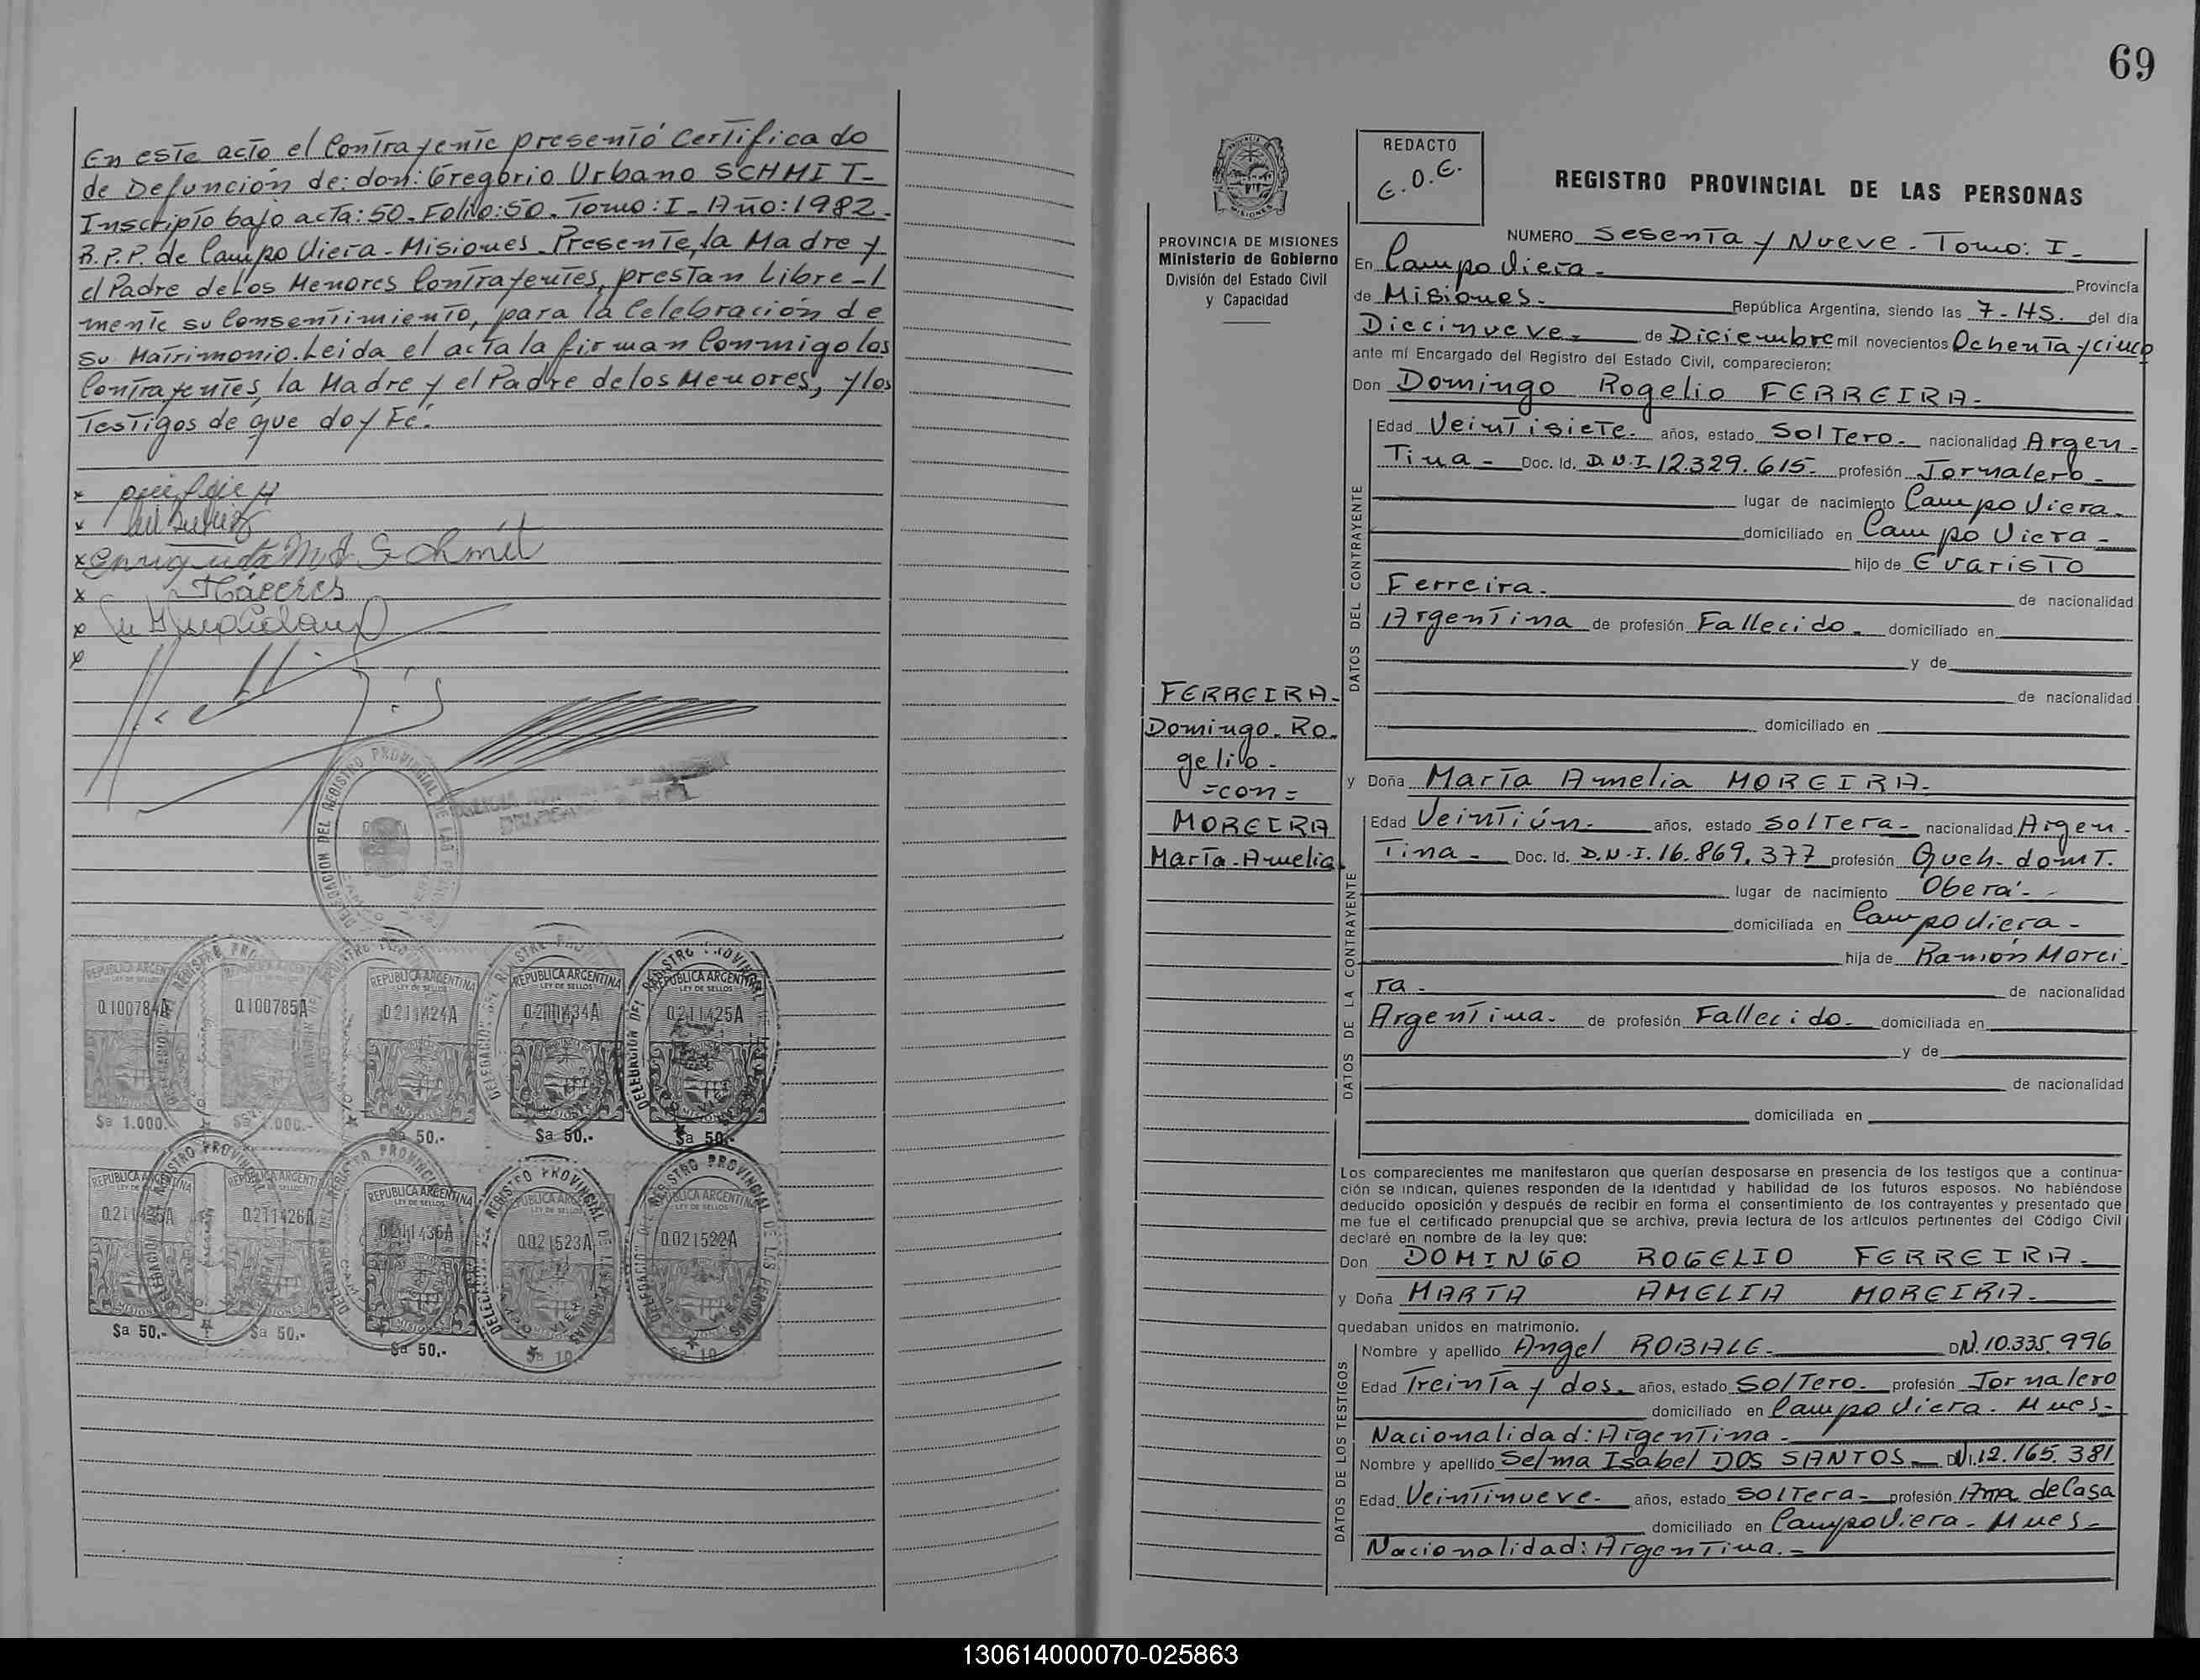 En este acto el Contrayente presentó Certificado
de Defunción de: don: Gregorio Urbano SCHMIT-
Inscripto bajo acta: 50. Folio: 50. Tomo: I. Año: 1982.
R.P.P. de Campo Viera - Misiones. Presente, la Madre y
el Padre de los Menores Contrayentes, prestan Libre-/
mente su Consentimiento, para la Celebración de
su Matrimonio. Leida el acta la firman Conmigo los
Contrayentes, la Madre y el Padre de los Menores, y los
Testigos de que doy Fé.
Schmit
Cáceres
REPUBLICA ARGENTINA
LEY DE SELLOS
0.100785A
0211424A
0211425A
$a 1.000.-
$a 50.-
$a 50.-
$a 50.-
0211426A
0211436A
0021523A
0021522A
$a 50.-
$a 50.-
$a 50.-
$a 10
$a 10
69
REDACTO
E.O.E.
REGISTRO PROVINCIAL DE LAS PERSONAS
PROVINCIA DE MISIONES
Ministerio de Gobierno
División del Estado Civil
y Capacidad
NUMERO Sesenta y Nueve. Tomo: I.
En Campo Viera. Provincia
de Misiones. República Argentina, siendo las 7-HS. del día
Diecinueve. de Diciembre mil novecientos Ochenta y cinco
ante mí Encargado del Registro del Estado Civil, comparecieron:
Don Domingo Rogelio FERREIRA.
DATOS DEL CONTRAYENTE
Edad Veintisiete. años, estado Soltero. nacionalidad Argen-
tina - Doc. Id. D.N.I 12.329.615. profesión Jornalero.
lugar de nacimiento Campo Viera.
domiciliado en Campo Viera -
hijo de Evaristo
Ferreira. de nacionalidad
Argentina de profesión Fallecido. domiciliado en
y de
de nacionalidad
domiciliado en
FERREIRA-
Domingo. Ro-
gelio.
=con=
MOREIRA
María-Amelia.
y Doña María Amelia MOREIRA.
DATOS DE LA CONTRAYENTE
Edad Veintiún. años, estado Soltera- nacionalidad Argen-
tina. Doc. Id. D.N.I. 16.869.377 profesión Queh. domt.
lugar de nacimiento Oberá.
domiciliada en Campo Viera-
hija de Ramón Morei-
ra. de nacionalidad
Argentina. de profesión Fallecido. domiciliada en
y de
de nacionalidad
domiciliada en
Los comparecientes me manifestaron que querían desposarse en presencia de los testigos que a continua-
ción se indican, quienes responden de la identidad y habilidad de los futuros esposos. No habiéndose
deducido oposición y después de recibir en forma el consentimiento de los contrayentes y presentado que
me fue el certificado prenupcial que se archiva, previa lectura de los artículos pertinentes del Código Civil
declaré en nombre de la ley que:
Don DOMINGO ROGELIO FERREIRA.
y Doña MARIA AMELIA MOREIRA.
quedaban unidos en matrimonio.
DATOS DE LOS TESTIGOS
Nombre y apellido Angel ROBALE. DNI. 10.335.996
Edad Treinta y dos. años, estado Soltero. profesión Jornalero
domiciliado en Campo Viera. Mnes.
Nacionalidad: Argentina.
Nombre y apellido Selma Isabel DOS SANTOS DNI. 12.165.381
Edad Veintinueve. años, estado Soltera- profesión Ama de Casa
domiciliado en Campo Viera. Mnes-
Nacionalidad: Argentina.-
130614000070-025863